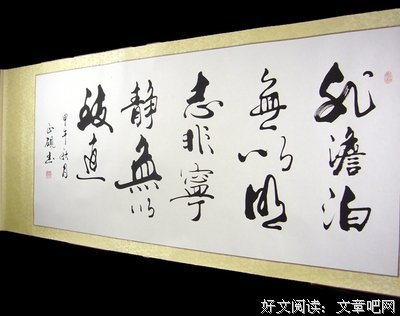 非澹泊
無以明
志非寧
静無以
致遠
甲午秋月
好文阅读：文章吧网